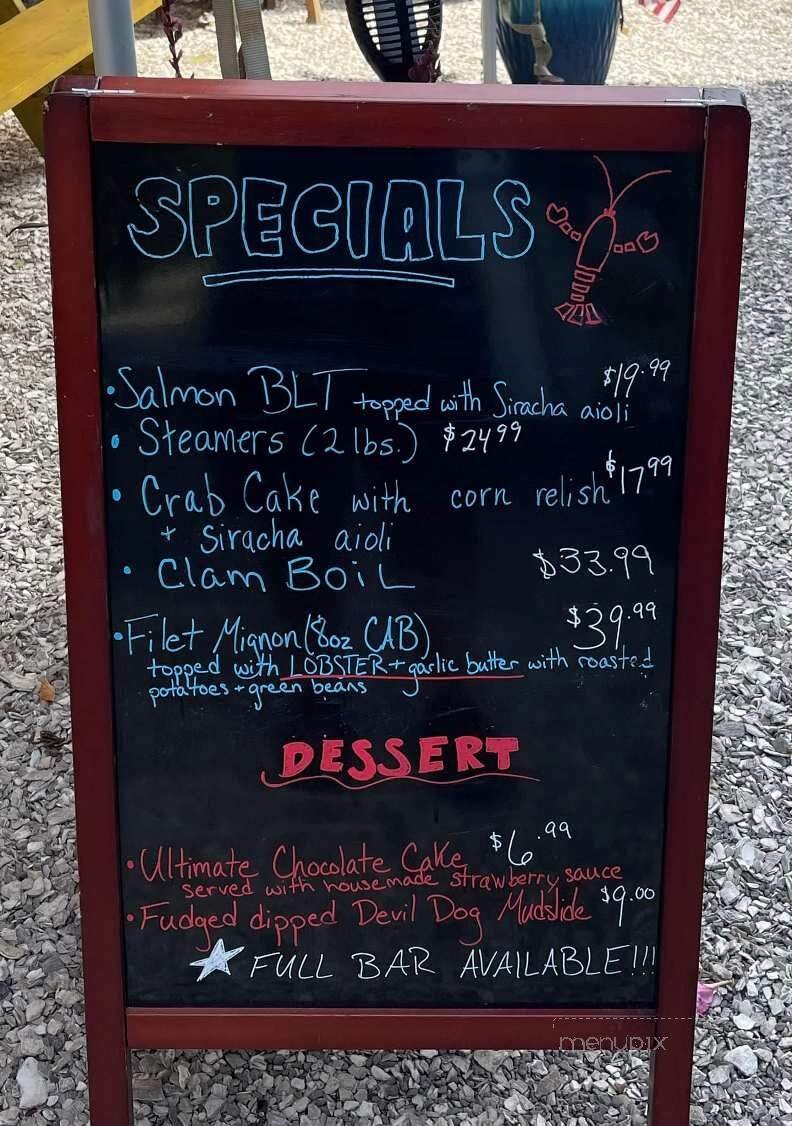 SPECIALS
• Salmon BLT topped with Siracha aioli $19.99
• Steamers (2 lbs.) $24.99
• Crab Cake with corn relish $17.99
+ Siracha aioli
• Clam BOiL $33.99
• Filet Mignon (8oz CAB) $39.99
topped with LOBSTER + garlic butter with roasted
potatoes + green beans
DESSERT
• Ultimate Chocolate Cake $6.99
served with housemade strawberry sauce
• Fudged dipped Devil Dog Mudslide $9.00
FULL BAR AVAILABLE!!!
menupix